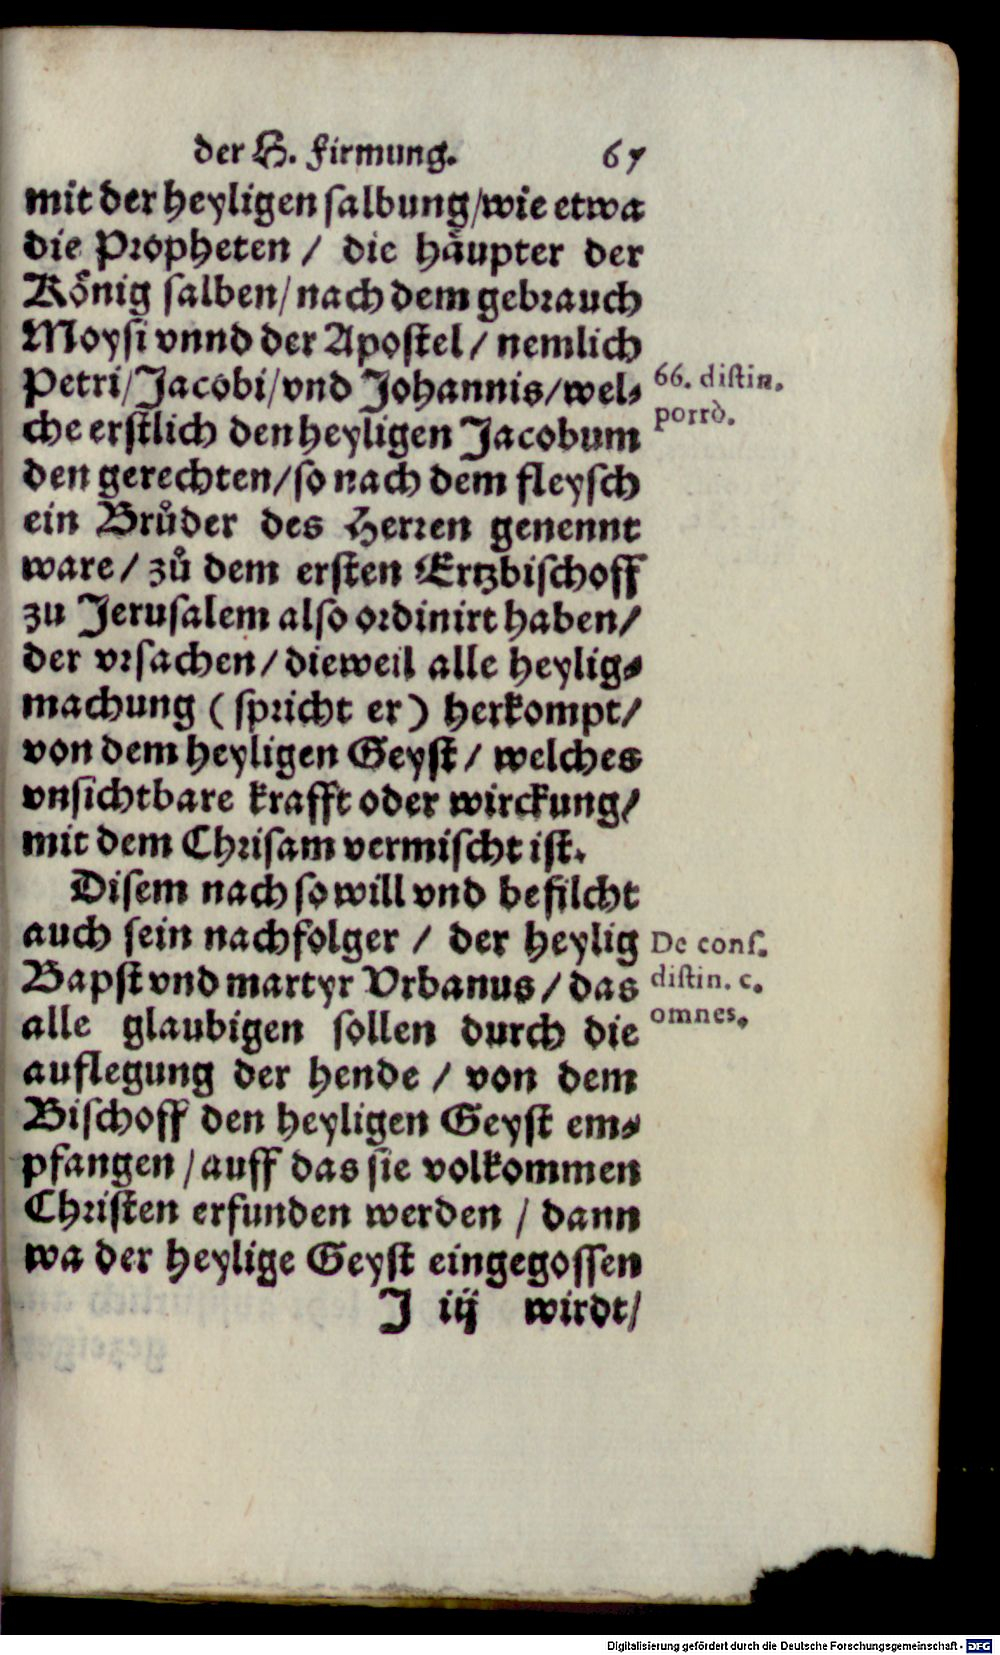 der H. Firmung. 67
mit der heyligen salbung/wie etwa
die Propheten / die häupter der
König salben/nach dem gebrauch
Moysi vnnd der Apostel / nemlich
Petri/Jacobi/vnd Johannis/wel-
66. distin.
porrò.
che erstlich den heyligen Jacobum
den gerechten/so nach dem fleysch
ein Brůder des Herren genennt
ware / zů dem ersten Ertzbischoff
zu Jerusalem also ordinirt haben/
der vrsachen/dieweil alle heylig-
machung (spricht er) herkompt/
von dem heyligen Geyst/ welches
vnsichtbare krafft oder wirckung/
mit dem Chrisam vermischt ist.
Disem nach so will vnd befilcht
auch sein nachfolger / der heylig
Bapst vnd martyr Vrbanus/das
De cons.
distin. c.
omnes.
alle glaubigen sollen durch die
auflegung der hende / von dem
Bischoff den heyligen Geyst em-
pfangen/auff das sie volkommen
Christen erfunden werden / dann
wa der heylige Geyst eingegossen
J iij wirdt/
Digitalisierung gefördert durch die Deutsche Forschungsgemeinschaft - DFG